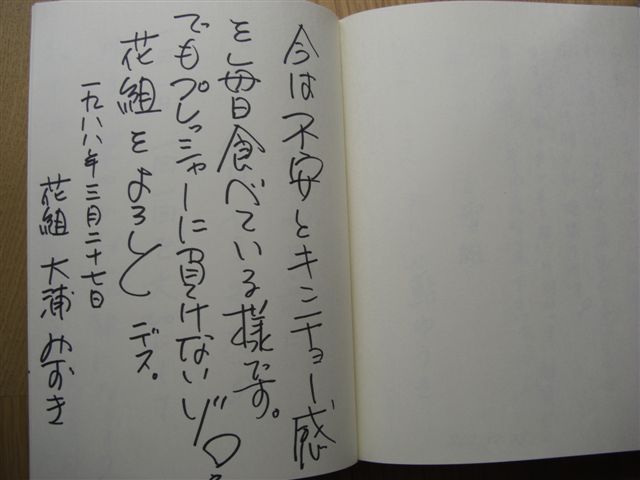 今は不安とキンチョー感
を毎日食べている様です。
でもプレッシャーに負けないゾ
花組をよろしくデス。
一九八八年三月二十七日
花組 大浦みずき